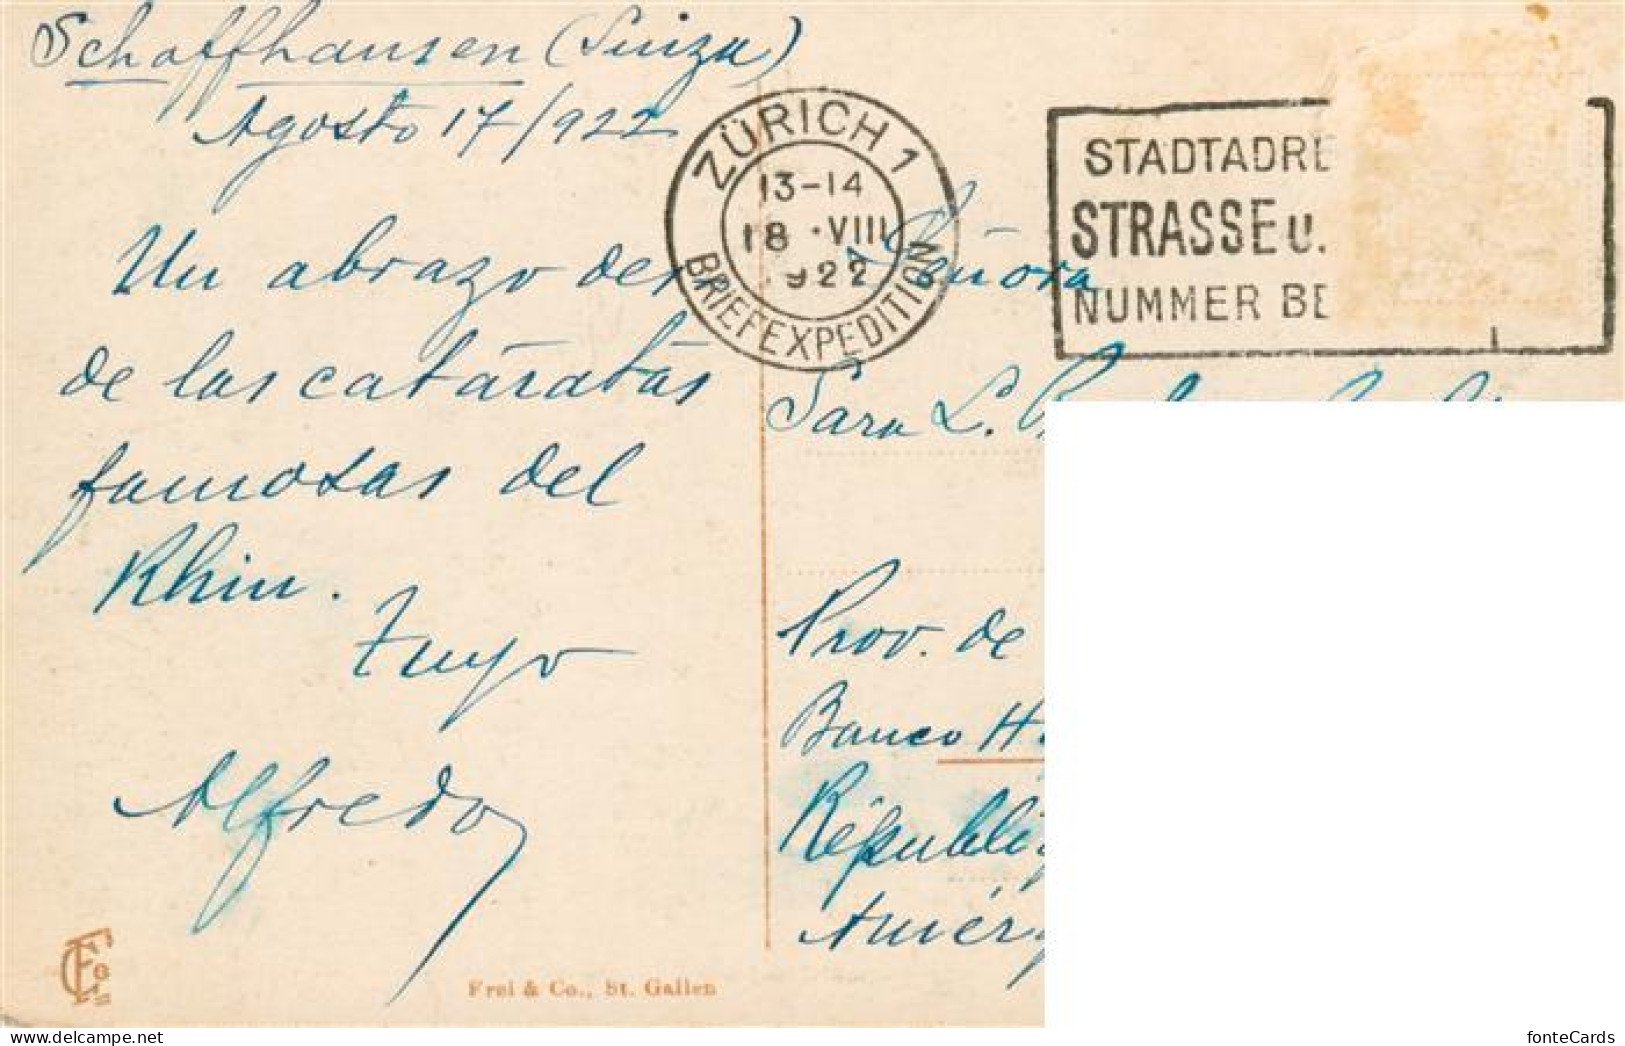 Schaffhausen (Suiza)
Agosto 17/922
Un abrazo des
de las cataratas
famosas del
Rhin.
Tuyo
Alfredo
ZÜRICH 1
13-14
18 · VIII
922
BRIEFEXPEDITION
STADTADRE
STRASSE u.
NUMMER BE
Señora
Sara L.
Prov. de
Banco H
Républi
Amér
Frei & Co., St. Gallen
fonteCards